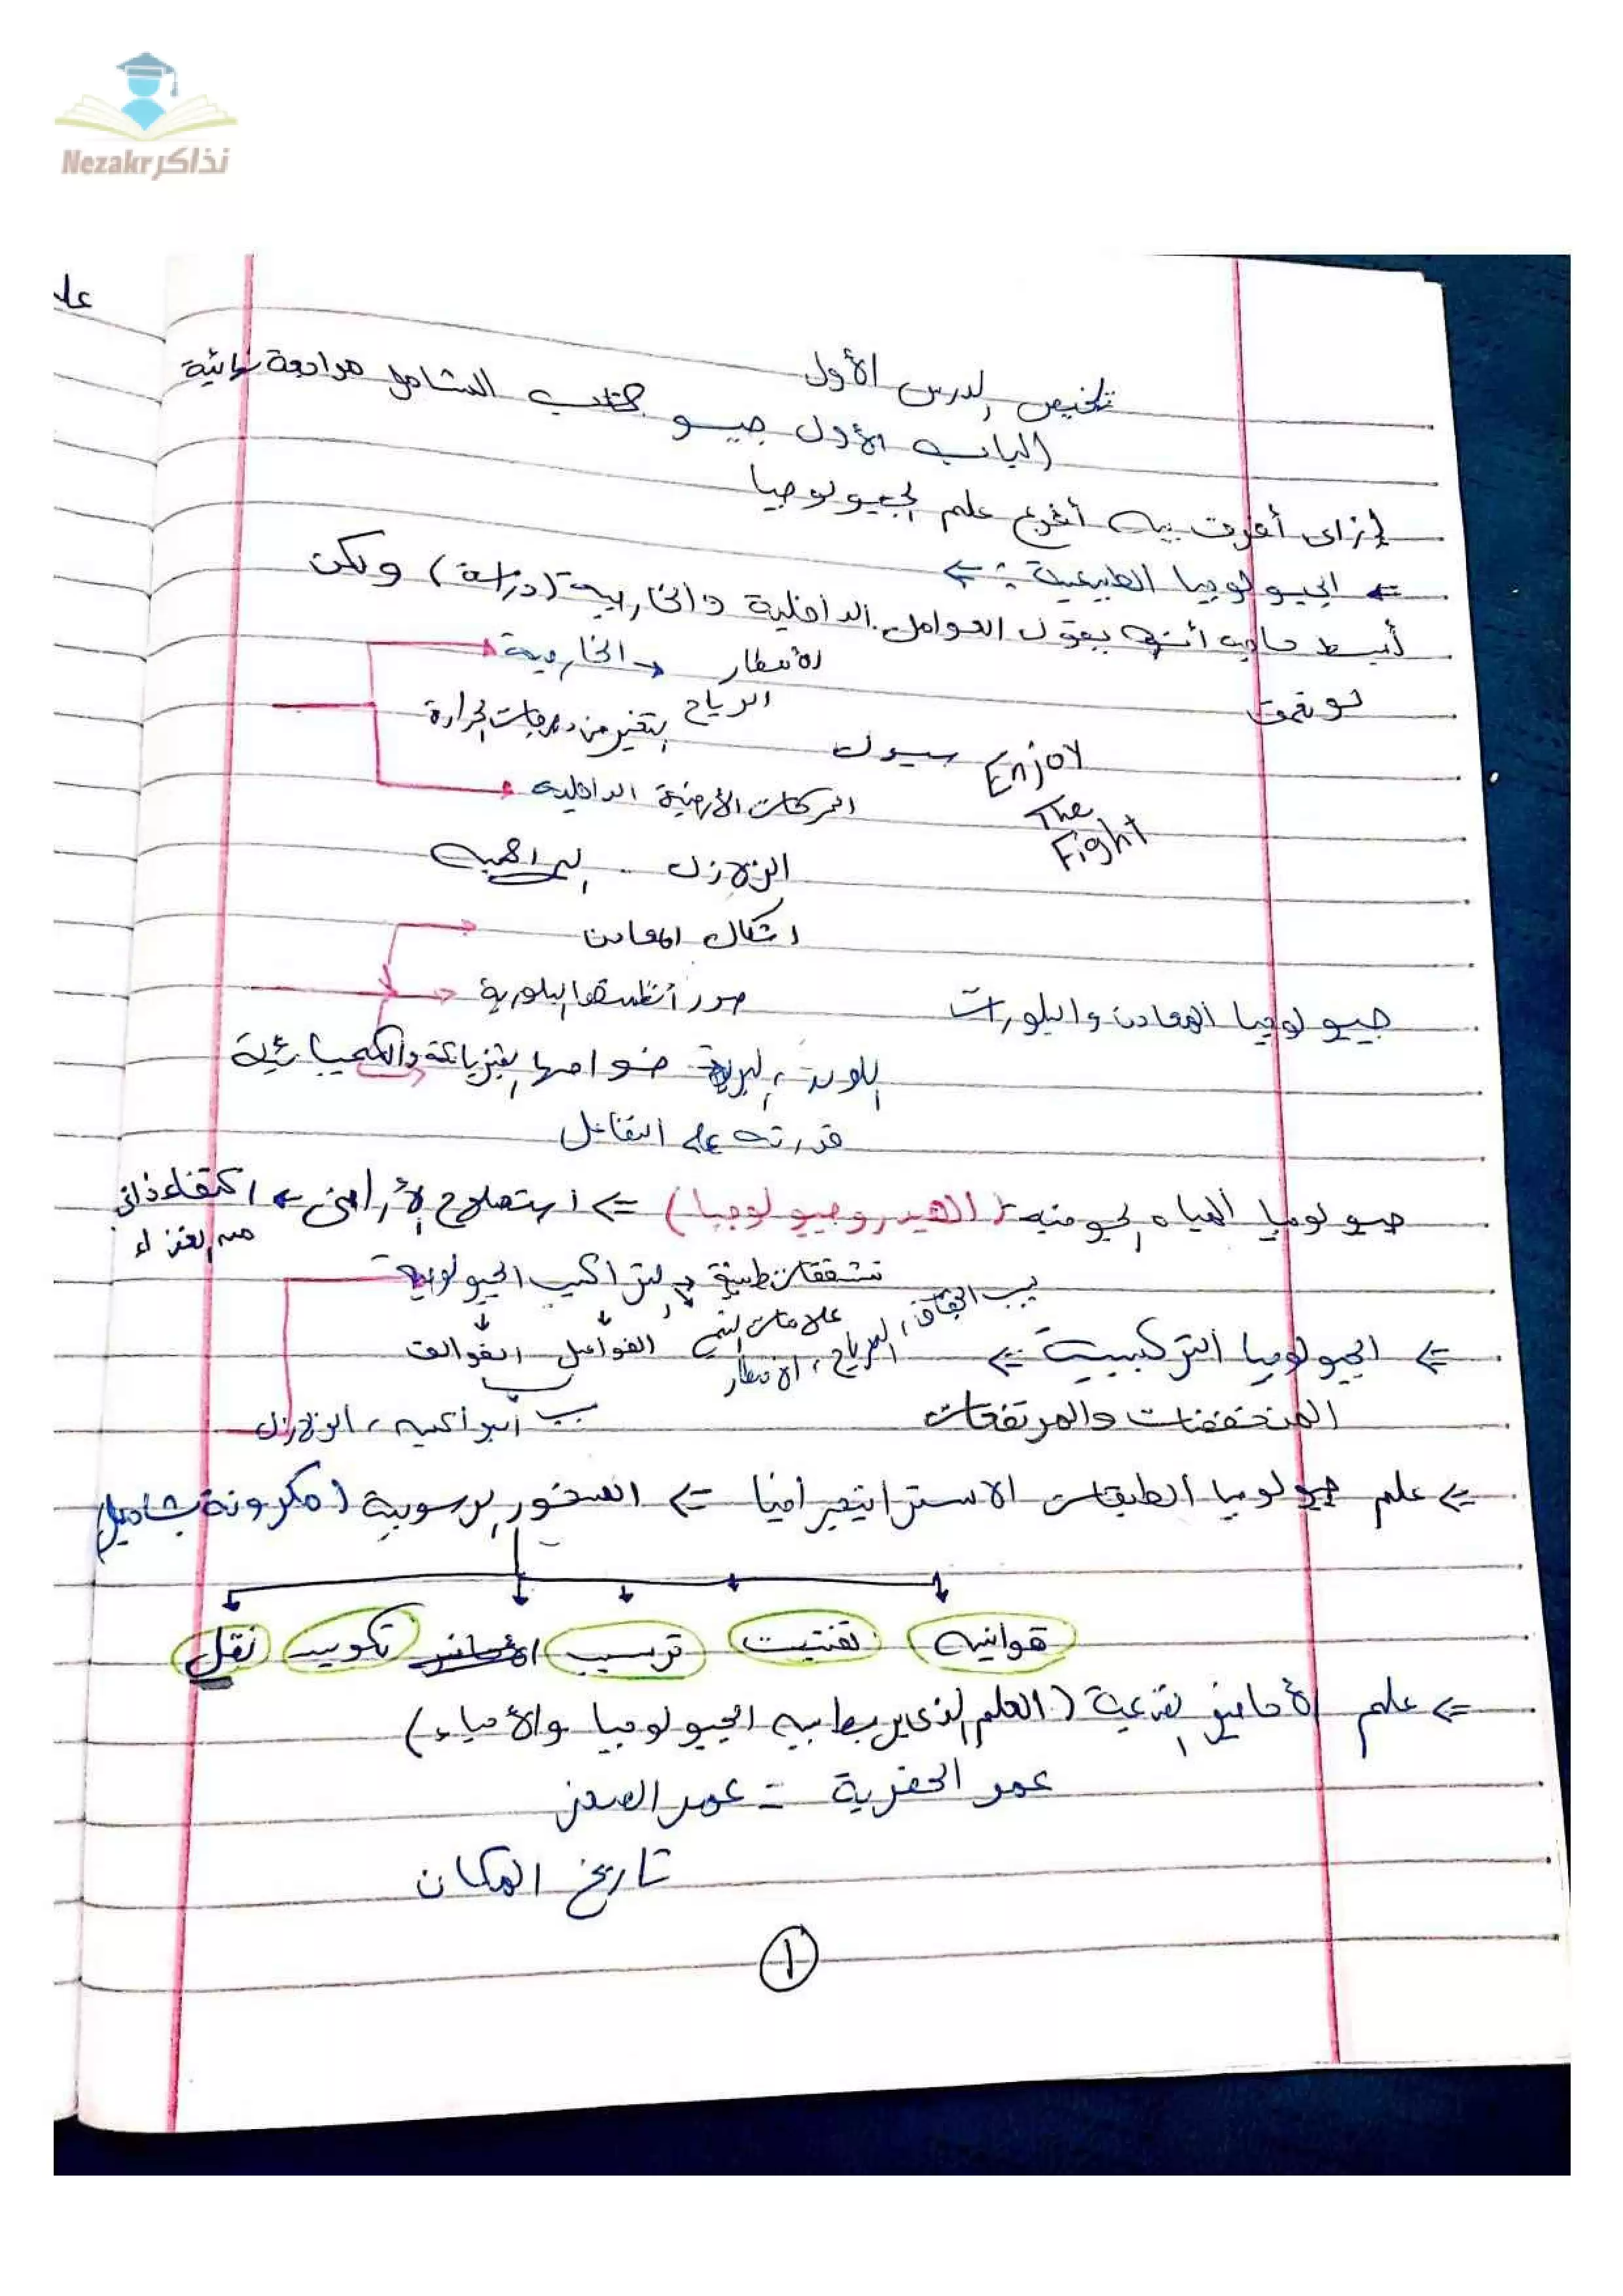 Nezakr نذاكر
عل
تلخيص الدرس الأول
الباب الأول جيو كتاب الشامل مراجعة نهائية
إزاى أفرق بين أفرع علم الجيولوجيا
⇐ الجيولوجيا الطبيعية : ⇐
أبسط حاجه أنها بيقول العوامل الداخلية والخارجية (دراسة) ولكن
لو نمت
الأمطار → الخارجية
الرياح التغير من درجات الحرارة
سيول
Enjoy
The
Fight
الحركات الأرضية الداخليه
الزلازل . البراكين
اشكال المعادن
جيولوجيا المعادن والبلورات
صور أنظمتها البلورية
اللون ، البريق خواصها الفيزيائية والكيميائية
قدرته على التفاعل
جيولوجيا المياه الجوفيه (الهيدروجيولوجيا) ⇐ استصلاح الأراضى ← اكتفاء ذاتى
من الغذاء
تشققات طينية التراكيب الجيولوجية
بسبب الجفاف ، الرياح ، الامطار
علامات النيم
⇐ الجيولوجيا التركيبية ⇐
الفواصل الفوالق
المنخفضات والمرتفعات
بسبب البراكين ، الزلازل
⇐ علم جيولوجيا الطبقات الاستراتيجرافيا ⇐ الصخور الرسوبية (مكرونة بشاميل)
قوانين تفتيت ترسيب تكوين نقل
⇐ علم الأحافير القديمة (العلم الذى يربط بين الجيولوجيا والأحياء)
عمر الحفرية = عمر الصخر
تاريخ المكان
١